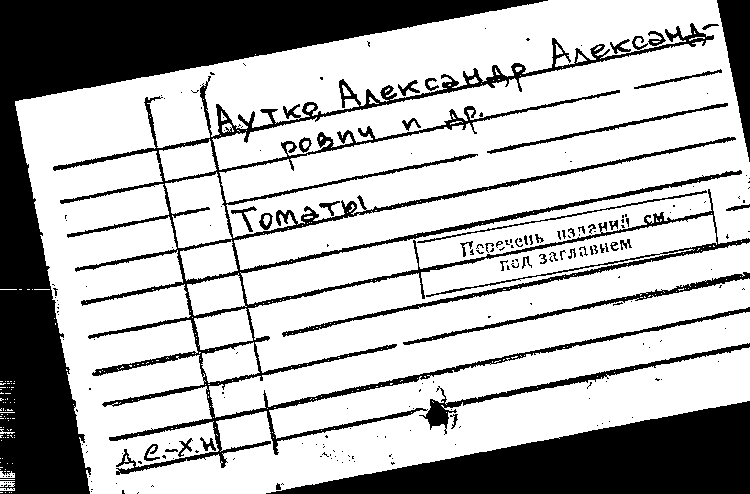 Аутко, Александр Александ-
рович и др.
Томаты.
Перечень изданий см.
под заглавием
д.с.-х.н